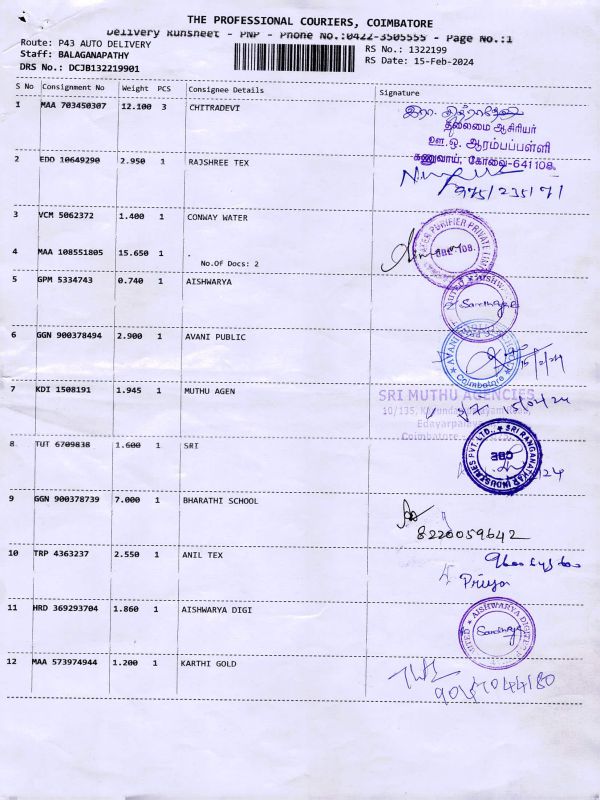 THE PROFESSIONAL COURIERS, COIMBATORE
Delivery Runsheet - PNP - Phone No.:0422-3505555 - Page No.:1
Route: P43 AUTO DELIVERY
RS No.: 1322199
Staff: BALAGANAPATHY
RS Date: 15-Feb-2024
DRS No.: DCJB132219901
S No Consignment No Weight PCS Consignee Details Signature
1 MAA 703450307 12.100 3 CHITRADEVI
தலைமை ஆசிரியர்
ஊ.ஒ. ஆரம்பப்பள்ளி
கணுவாய், கோவை-641 108.
2 EDO 10649290 2.950 1 RAJSHREE TEX
975123517 1
3 VCM 5062372 1.400 1 CONWAY WATER
WATER PURIFIER PRIVATE
4 MAA 108551805 15.650 1 .
No.Of Docs: 2
5 GPM 5334743 0.740 1 AISHWARYA
6 GGN 900378494 2.900 1 AVANI PUBLIC
AVANI
Coimbatore
15/2/24
7 KDI 1508191 1.945 1 MUTHU AGEN
SRI MUTHU AGENCIES
10/135,
15/02/24
Coimbatore
8 TUT 6709838 1.600 1 SRI
SRI RANGANATHAR INDUSTRIES PVT. LTD.,
CBE
9 GGN 900378739 7.000 1 BHARATHI SCHOOL
8220059642
10 TRP 4363237 2.550 1 ANIL TEX
Priya
11 HRD 369293704 1.860 1 AISHWARYA DIGI
AISHWARYA
12 MAA 573974944 1.200 1 KARTHI GOLD